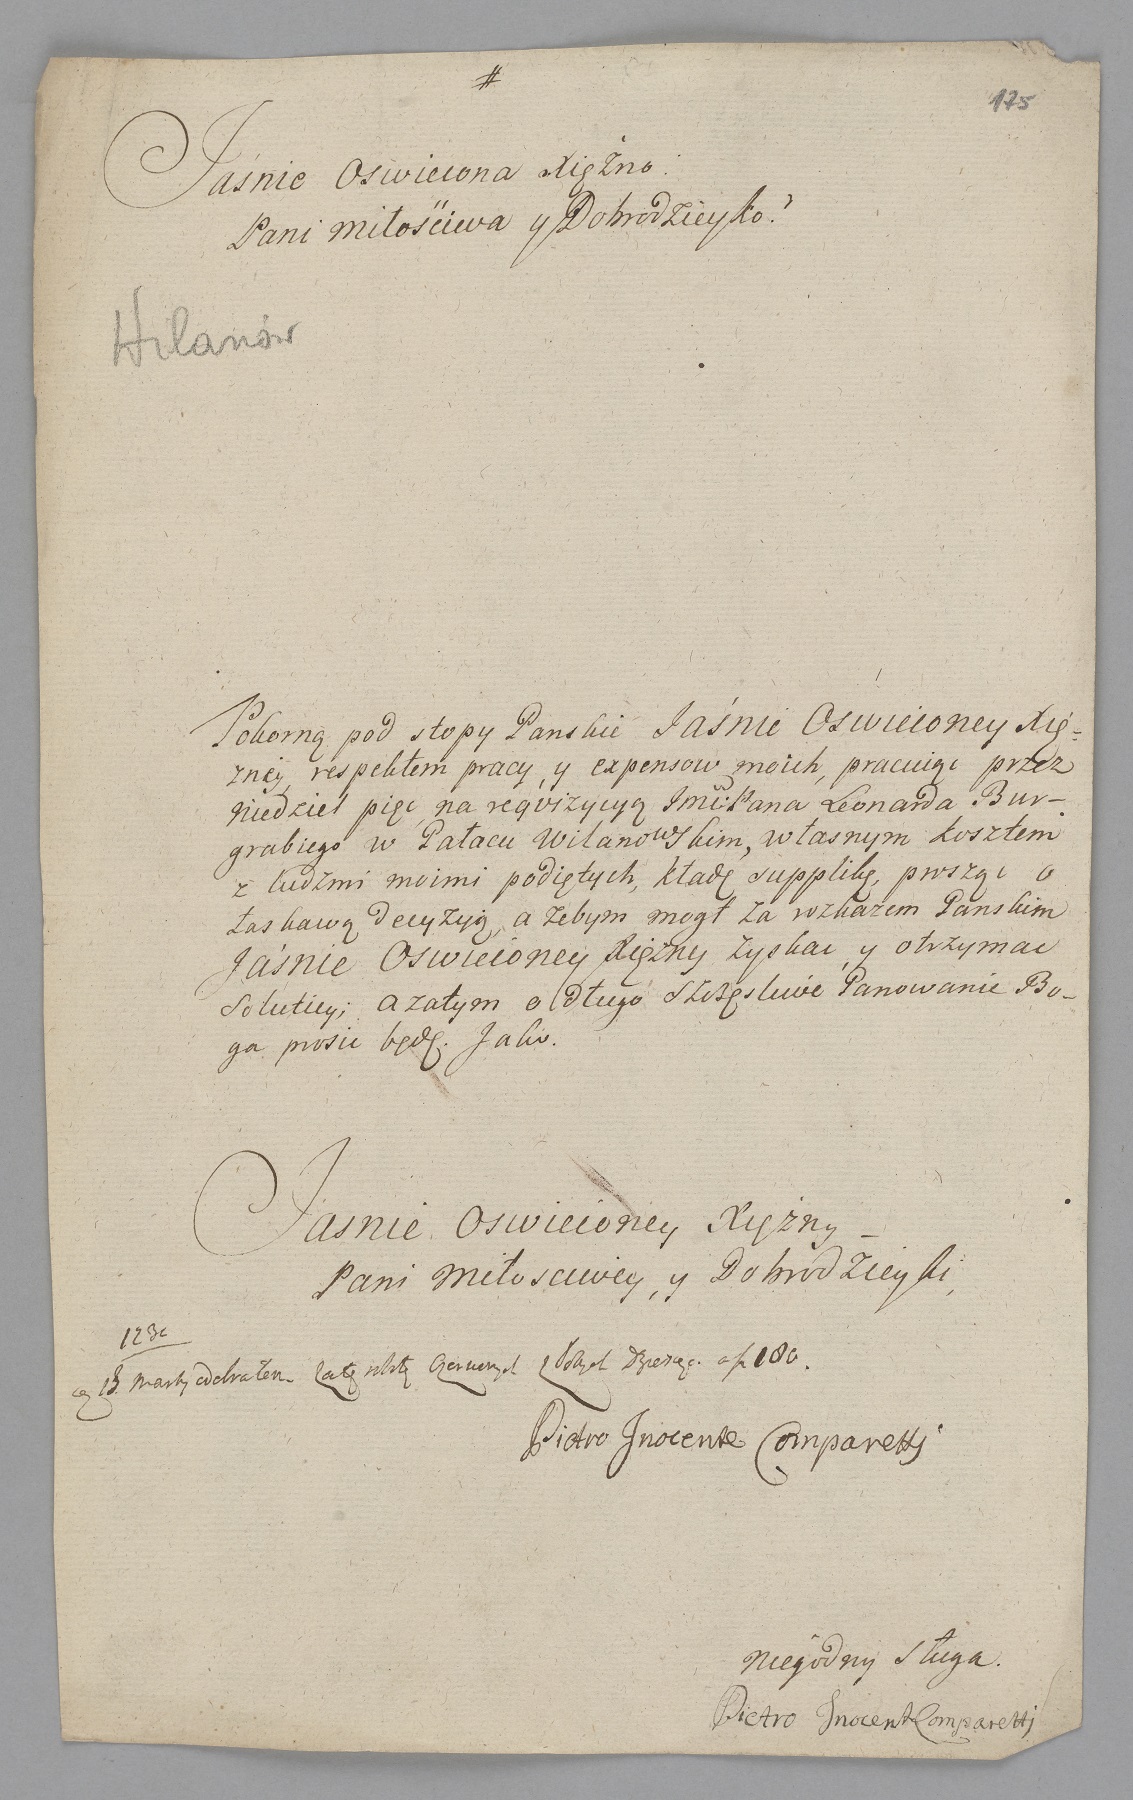 #
175
Jaśnie Oswiecona Xiężno.
Pani Miłościwa y Dobrodzieyko.
Wilanów
Pokorną pod stopy Panskie Jaśnie Oswieconey Xię-
zney, respektem pracy, y expensow moich, pracuiąc przez
niedziel pięc, na reqvizycyą Pana Leonarda Bur-
grabiego w Pałacu Wilanowskim, własnym kosztem
z ludzmi moimi podiętych, kładę supplikę, prosząc o
łaskawą decyzyą, a zebym mogł za rozkazem Panskim
Jaśnie Oswieconey Xiężny zyskac, y otrzymac
Solutiey; a zatym o długo Szczęsliwe Panowanie Bo-
ga prosic będę. Jako.
Jasnie Oswieconey Xiężny
Pani Miłosciwey, y Dobrodzieyki,
13. Marty odebrałem Czerwonych Złotych 180.
Pietro Inocente Comparetti
niegodny Sługa.
Pietro Inocent Comparetti